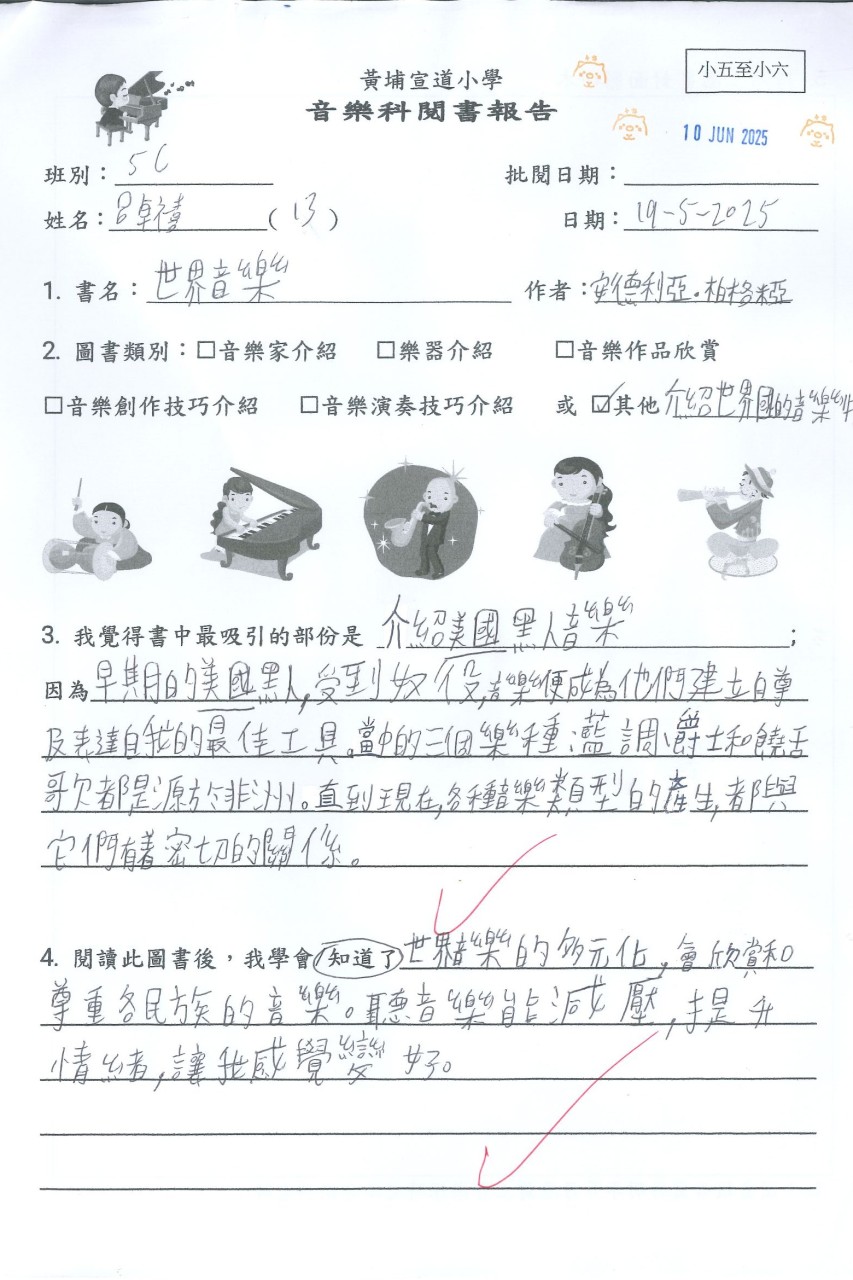 黃埔宣道小學
小五至小六
音樂科閱書報告
10 JUN 2025
班別：5C 批閱日期：
姓名：呂卓禧(13) 日期：19-5-2025
1. 書名：世界音樂 作者：安德利亞·柏格米亞
2. 圖書類別：☐音樂家介紹 ☐樂器介紹 ☐音樂作品欣賞
☐音樂創作技巧介紹 ☐音樂演奏技巧介紹 或 ☑其他 介紹世界國的音樂
3. 我覺得書中最吸引的部份是 介紹美國黑人音樂；
因為早期的美國黑人,受到奴役,音樂便成為他們建立自尊
及表達自我的最佳工具。當中的三個樂種:藍調、爵士和饒舌
歌欠都是源於非洲。直到現在,各種音樂類型的產生,都與
它們有著密切的關係。
4. 閱讀此圖書後，我學會/知道了世界音樂的多元化,會欣賞和
尊重各民族的音樂。聽音樂能減壓,提升
情緒,讓我感覺變好。